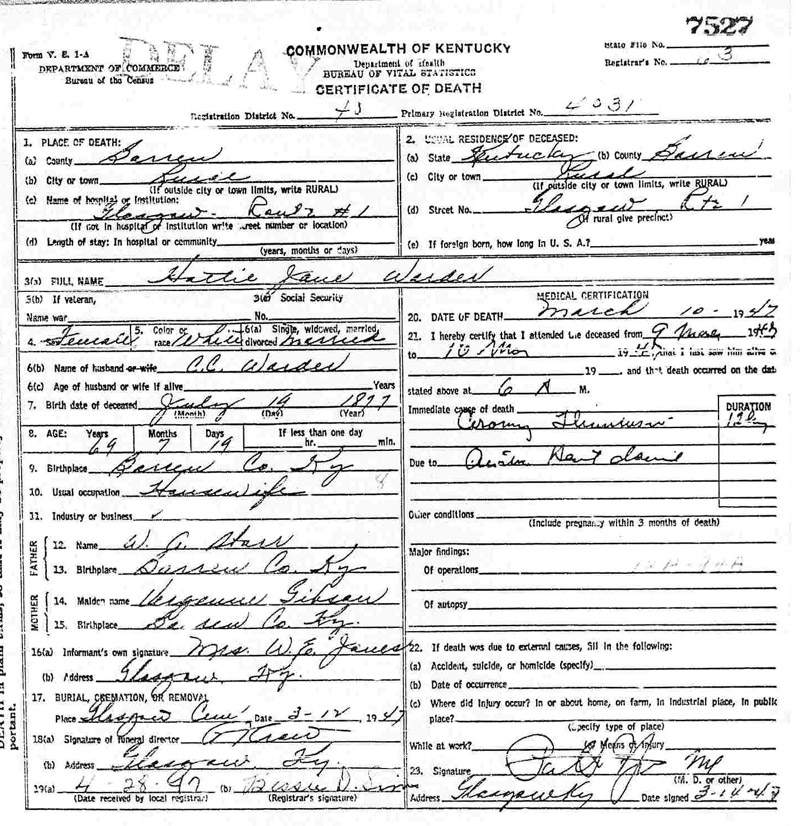 7527
Form V. S. 1-A
DELAY
COMMONWEALTH OF KENTUCKY
State File No.
DEPARTMENT OF COMMERCE
Department of Health
Registrar's No. 63
Bureau of the Census
BUREAU OF VITAL STATISTICS
CERTIFICATE OF DEATH
Registration District No. 43 Primary Registration District No. 4031
1. PLACE OF DEATH:
(a) County Barren
(b) City or town Rural
(If outside city or town limits, write RURAL)
(c) Name of hospital or institution:
Glasgow - Route #1
(If not in hospital or institution write street number or location)
(d) Length of stay: In hospital or community
(years, months or days)
2. USUAL RESIDENCE OF DECEASED:
(a) State Kentucky (b) County Barren
(c) City or town Rural
(If outside city or town limits, write RURAL)
(d) Street No. Glasgow Rte 1
(If rural give precinct)
(e) If foreign born, how long in U. S. A.? years
3(a) FULL NAME Hattie Jane Warder
3(b) If veteran,
Name war
3(c) Social Security
No.
4. Female 5. Color or race White 6(a) Single, widowed, married, divorced married
6(b) Name of husband or wife C.C. Warder
6(c) Age of husband or wife if alive Years
7. Birth date of deceased July 19 1877
(Month) (Day) (Year)
8. AGE: Years Months Days If less than one day
69 7 19 hr. min.
9. Birthplace Barren Co. Ky
10. Usual occupation Housewife 8
11. Industry or business ✓
FATHER
12. Name W. G. Starr
13. Birthplace Barren Co. Ky
MOTHER
14. Maiden name Gibson
15. Birthplace Barren Co. Ky.
16(a) Informant's own signature Mrs. W.E. Janes
(b) Address Glasgow Ky.
17. BURIAL, CREMATION, OR REMOVAL
Place Glasgow Cem Date 3-12 1947
18(a) Signature of funeral director
(b) Address Glasgow Ky.
19(a) 4-28-47 (b) Bessie D.
(Date received by local registrar) (Registrar's signature)
MEDICAL CERTIFICATION
20. DATE OF DEATH March 10- 1947
21. I hereby certify that I attended the deceased from 9 19
to 10 Mar 19 that I last saw him alive o
19 and that death occurred on the dat
stated above at 6 A M.
Immediate cause of death
DURATION
Due to
Other conditions
(Include pregnancy within 3 months of death)
Major findings:
Of operations
Of autopsy
22. If death was due to external causes, fill in the following:
(a) Accident, suicide, or homicide (specify)
(b) Date of occurrence
(c) Where did injury occur? In or about home, on farm, in industrial place, in public
place?
(Specify type of place)
While at work? (e) Means of injury
23. Signature MD
(M. D. or other)
Address Glasgow Ky Date signed 3-14-47
portant.